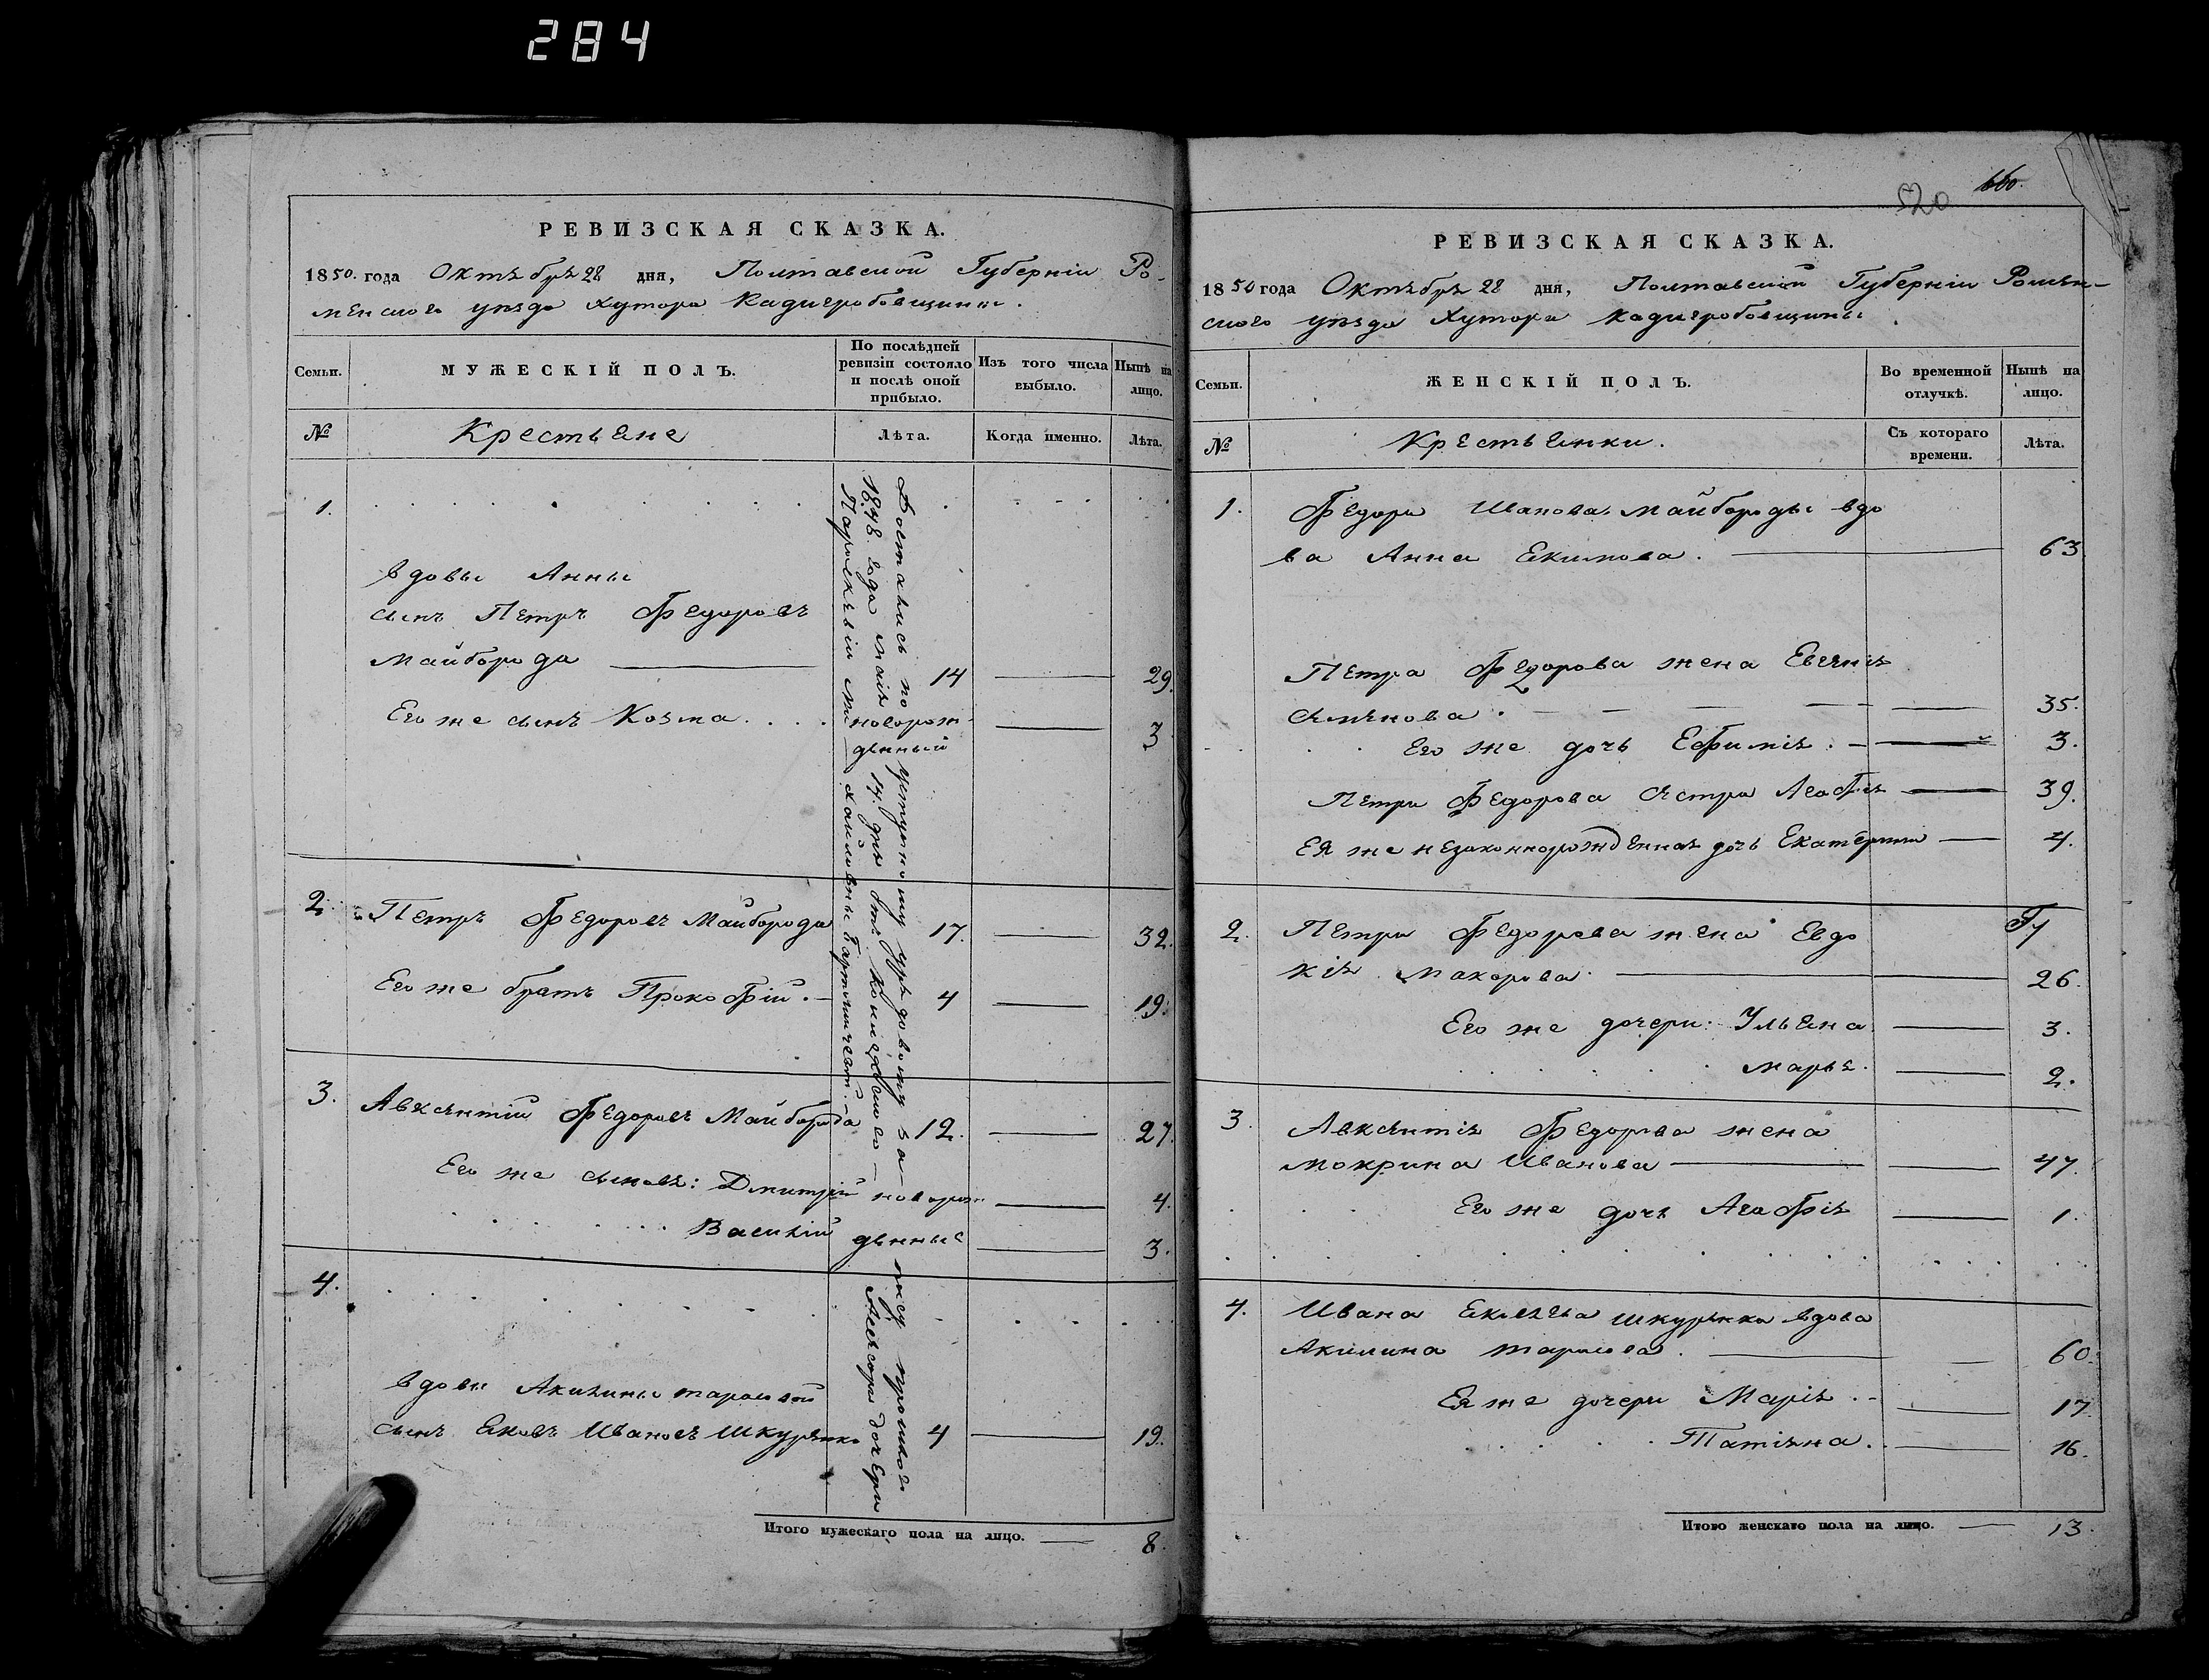 284
РЕВИЗСКАЯ СКАЗКА.
1850. года Октября 28 дня, Полтавской Губерніи Ро-
менского уезда Хутора Кадигробовщины.
Семьи. МУЖЕСКІЙ ПОЛЪ. По послѣдней ревизіи состояло и послѣ оной прибыло. Изъ того числа выбыло. Нынѣ на лицо.
№ Крестьяне Лѣта. Когда именно. Лѣта.
1.
вдовы Анны
сынъ Петръ Федоровъ
Майборода 14 29.
Его же сынъ Козма новорож-
денный 3
2. Петръ Федоровъ Майборода 17. 32.
Его же братъ Прокофій. 4 19.
3. Авксентій Федоровъ Майборода 12. 27.
Его же сыновья: Дмитрій новорож 4.
Василій денные 3.
4.
вдовы Акилины Тарасовой
сынъ Яковъ Ивановъ Шкуренко 4 19.
Достались по уступному урядовому за
1848. года Маія 14. дня отъ
Параскевіи Михайловны дочери
Итого мужескаго пола на лицо. 8.
520 660.
РЕВИЗСКАЯ СКАЗКА.
1850 года Октября 28 дня, Полтавской Губерніи Ромен-
ского уезда Хутора Кадигробовщины.
Семьи. ЖЕНСКІЙ ПОЛЪ. Во временной отлучкѣ. Нынѣ на лицо.
№ Крестьянки. Съ котораго времени. Лѣта.
1. Федора Иванова Майбороды вдо
ва Анна Екимова. 63
Петра Федорова жена Евгенія
Семенова. 35.
Его же дочь Ефимія. 3.
Петра Федорова сестра Агафія 39.
Ея же незаконнорожденная дочь Екатерина 4.
2. Петра Федорова жена Евдо
кія Макарова. 26.
Его же дочери: Ульяна 3.
Марья. 2.
3. Авксентія Федорова жена
Мокрина Иванова 47.
Его же дочь Агафія 1.
4. Ивана Яковлева Шкуренка вдова
Акилина Тарасова. 60.
Ея же дочери Марія. 17
Татіяна. 16.
Итого женскаго пола на лицо. 13.